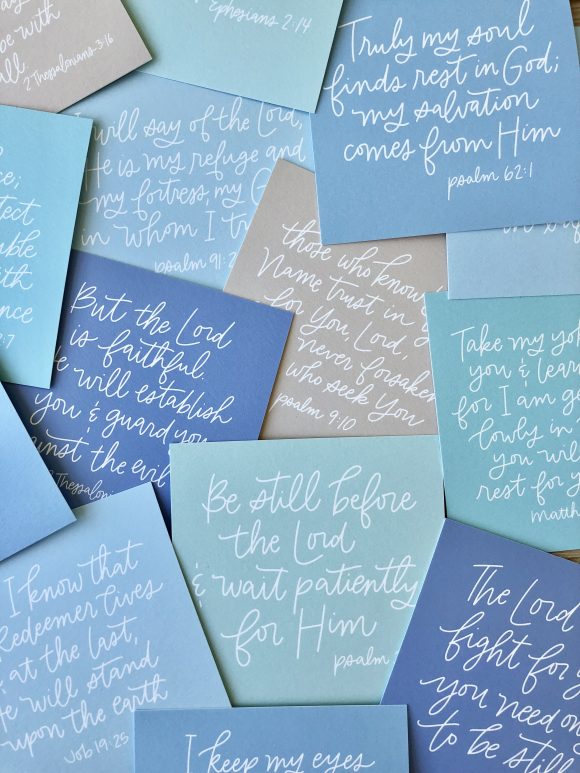 be with
all.
2 Thessalonians 3:16
Ephesians 2:14
Truly my soul
finds rest in God;
my salvation
comes from Him
psalm 62:1
I will say of the Lord,
He is my refuge and
my fortress, my G
in whom I tr
psalm 91:2
those who know
Name trust in y
for You, Lord,
never forsaken
who seek You
psalm 9:10
But the Lord
is faithful.
He will establish
you & guard you
against the evil
Thessaloni
Take my yo
you & lear
for I am ge
lowly in
you will
rest for y
Matth
Be still before
the Lord
& wait patiently
for Him
psalm
I know that
Redeemer lives
& at the last,
He will stand
upon the earth
Job 19:25
The Lord
fight for y
you need on
to be still
I keep my eyes